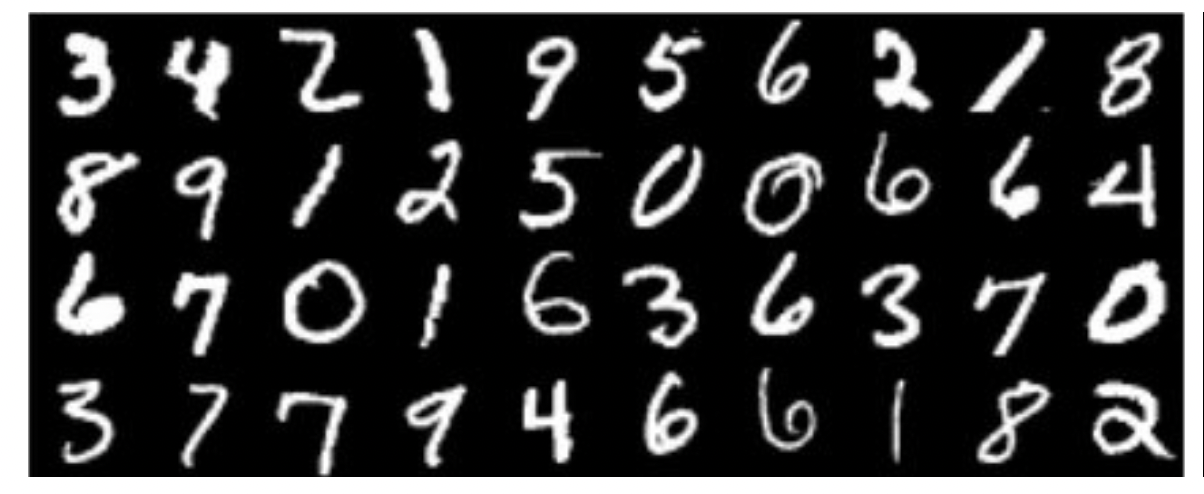 3 4 2 1 9 5 6 2 1 8
8 9 1 2 5 0 0 6 6 4
6 7 0 1 6 3 6 3 7 0
3 7 7 9 4 6 6 1 8 2